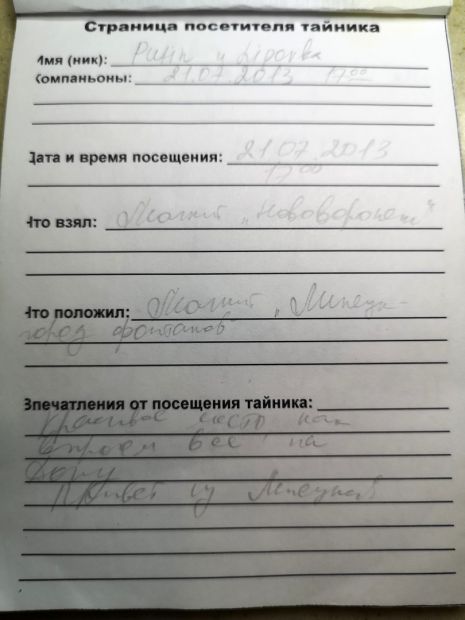 Страница посетителя тайника
Имя (ник):
Компаньоны: 21.07.2013 17 00
Дата и время посещения: 21.07.2013
17 00
Что взял: Магнит „Нововоронеж"
Что положил: Магнит „Липецк-
город фонтанов
Впечатления от посещения тайника:
Красивое место как
впрочем все на
Дону
Привет из Липецка!